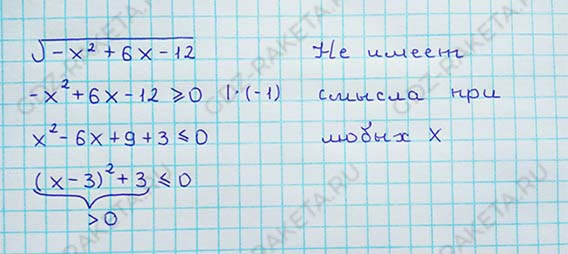 √−x² + 6x − 12 Не имеет
−x² + 6x − 12 ⩾ 0 | · (−1) смысла при
x² − 6x + 9 + 3 ⩽ 0 любых x
(x − 3)² + 3 ⩽ 0
> 0
GDZ-RAKETA.RU